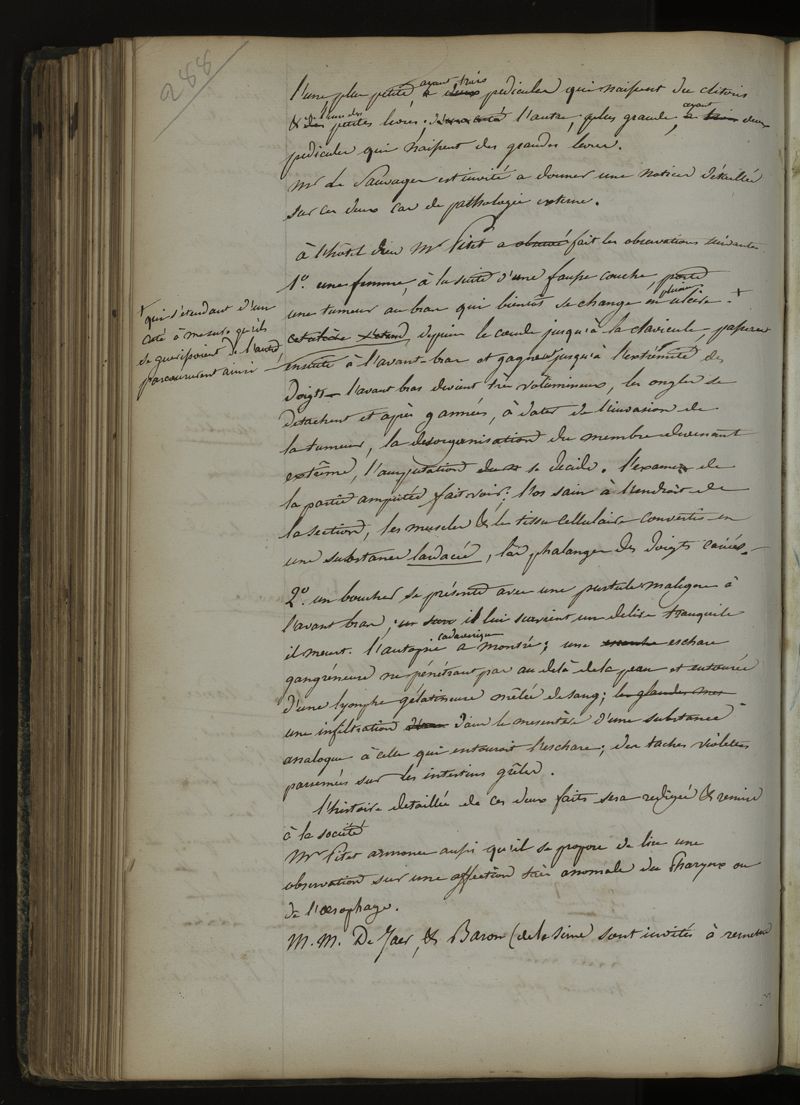 288
l'une plus petite, ayant trois pedicules qui naissent du clitoris
& l'une des petites levres; l'autre, plus grande, ayant deux
pedicules qui naissent des grandes levres.
Mr Le Sauvages est invité a donner une notice détaillée
sur ces deux cas de pathologie externe.
à l'hôtel dieu Mr Pitet a observé fait les observations suivantes
1o. une femme, à la suite d'une fausse couche porte
une tumeur au bras qui bientôt se change en ulcère. +
+ qui s'étendant d'un
coté à mesure qu'ils
se guerissoient de l'autre,
parcoururent ainsi
cet ulcère s'étend depuis le coude jusqu'à la clavicule, passerent
ensuite à l'avant-bras et gagnent jusqu'à l'extrémité des
doigts. l'avant bras devient très volumineux, les ongles se
detachent et après 9 années, à dater de l'invasion de
la tumeur, la desorganisation du membre devenant
extrême, l'amputation se decide. l'examen de
la partie amputée fait voir; l'os sain à l'endroit de
la section, les muscles & le tissu cellulaire convertis en
une substance lardacée, les phalanges des doigts cariés.
2o. un boucher se présente avec une pustule maligne à
l'avant bras, il lui survient un delire tranquile
il meurt. l'autopsie cadaverique a montré; une eschare
gangréneuse ne pénétrant pas au delà de la peau et entourée
d'une lymphe gélatineuse mêlée de sang; les glandes mes
une infiltration dans le mesentère d'une substance
analogue à celle qui entouroit l'eschare; des taches violettes
parsemées sur les intestins grêles.
l'histoire detaillée de ces deux faits sera redigée & remise
à la société
Mr Pitet annonce aussi qu'il se propose de lire une
observation sur une affection très anomale du Pharynx ou
de l'œsophage.
M. M. De Jaer, & Baron (de la seine sont invités à remettre